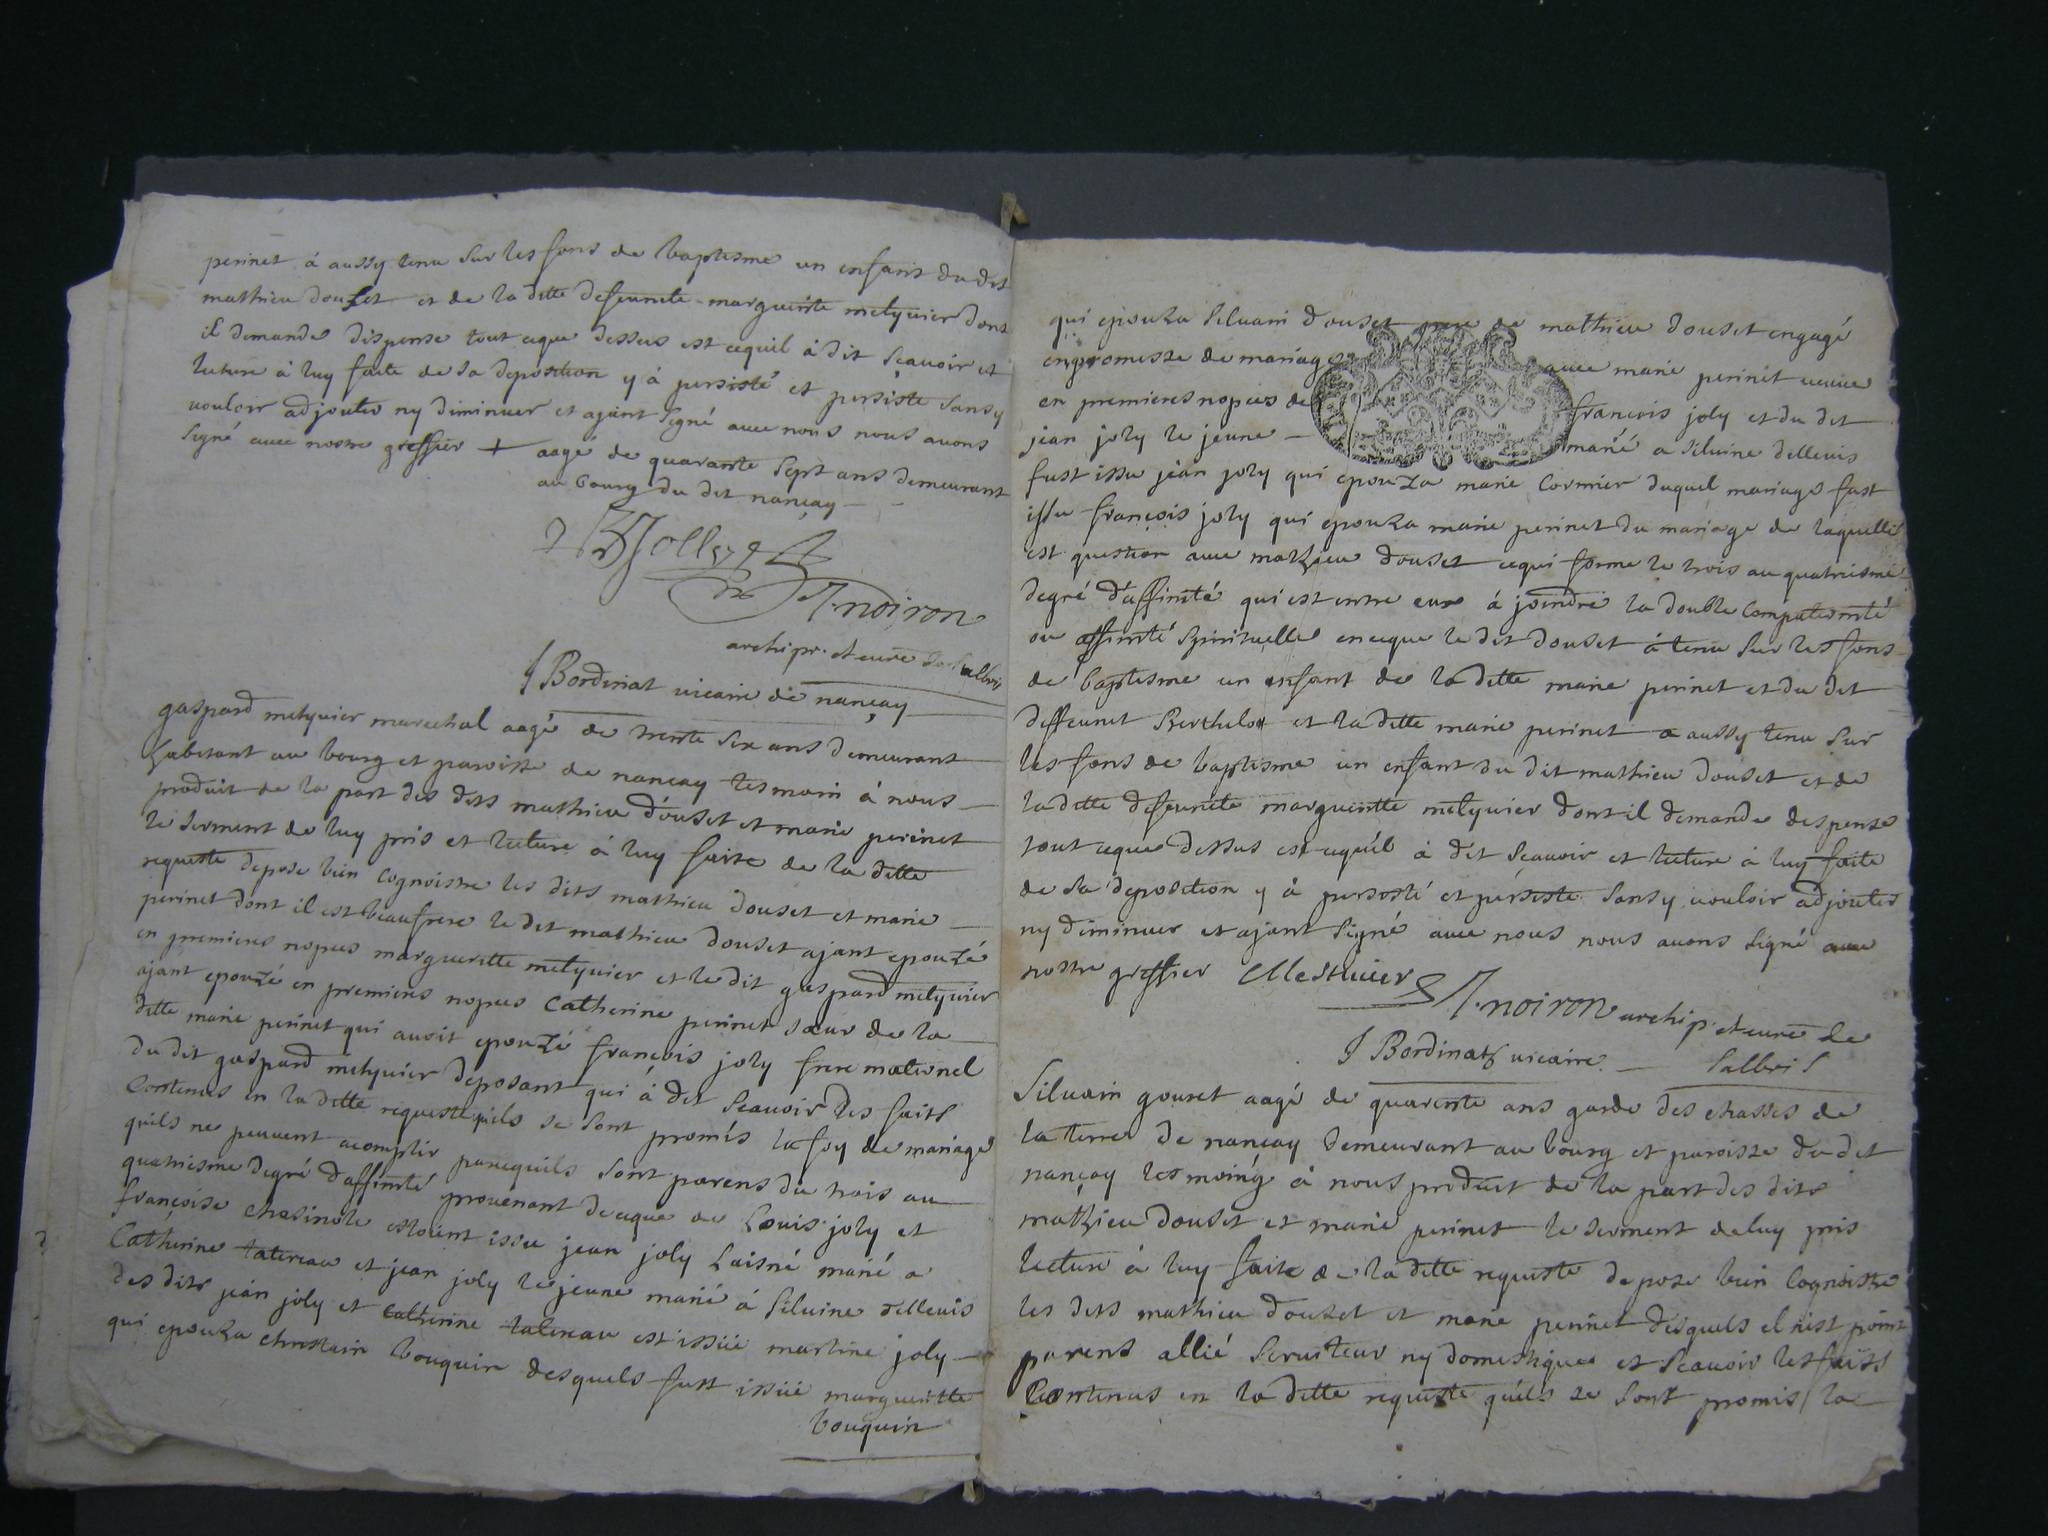 perinet à aussy tenu sur les fons de baptesme un enfant du dit
mathieu douzet et de la ditte defeunete margueritte metyvier dont
il demande dispense tout ceque dessus est cequil à dit scavoir et
lecture à luy faite de sa deposition y à persisté et persiste sans y
vouloir adjouter ny diminuer et ajant signé avec nous nous avons
signé avec nostre greffier + aagé de quarante sept ans demeurant
au bourg du dit nançay
Jollyet
J. noiron
archipr. et curé de Salbris
J Bordinat vicaire de nançay
gaspard metyvier marechal aagé de trente six ans demeurant
habitant au bourg et paroisse de nançay tesmoin à nous
produit de la part des dits mathieu douset et marie perinet
le serment de luy pris et lecture à luy faite de la ditte
requeste depose bien cognoistre les dits mathieu douset et marie
perinet dont il est beaufrere le dit mathieu douset ajant epouzé
en premieres nopces margueritte metyvier et le dit gaspard metyvier
ajant epouzé en premieres nopces Catherine perinet sœur de la
ditte marie perinet qui avoit epouzé françois joly frere maternel
du dit gaspard metyvier deposant qui à dit scavoir les faits
Contenus en la ditte requeste quils se sont promis la foy de mariage
quils ne peuvent acomplir parcequils sont parens du trois au
quatriesme degré daffinité provenant de ceque de Louis joly et
françoise chesinole estoient issu jean joly Laisné marié a
Catherine tatereau et jean joly le jeune marié à Silvine dellevis
des dits jean joly et catherine tatereau est issüe martine joly
qui epouza christain bouquin desquels fust issüe margueritte
bouquin
qui epouza Silvain douset pere de mathieu douset engagé
en promesse de mariage avec marie perinet veuve
en premieres nopces de françois joly et du dit
jean joly le jeune marié a silvine dellevis
fust issu jean joly qui epouza marie Cormier duquel mariage fust
issu françois joly qui epouza marie perinet du mariage de laquelle
est question avec mathieu douset cequi forme le trois au quatriesme
degré d'affinité qui est entre eux à joindre la double Compaternité
ou affinité spirituelle en ceque le dit douset à tenu sur les fons
de baptesme un enfant de la ditte marie perinet et du dit
deffeunt Berthelot et la ditte marie perinet a aussy tenu sur
les fons de baptesme un enfant du dit mathieu douset et de
la ditte defeunete margueritte metyvier dont il demande dispense
tout ceque dessus est cequil à dit scavoir et lecture à luy faite
de sa deposition y à persisté et persiste sans y vouloir adjouter
ny diminuer et ajant signé avec nous nous avons signé avec
nostre greffier Mestivier
J. noiron archip. et curé de
Salbris
J Bordinat vicaire
Silvain gouret aagé de quarente ans garde des chasses de
la terre de nançay demeurant au bourg et paroisse du dit
nançay tesmoing à nous produit de la part des dits
mathieu douset et marie perinet le serment de luy pris
lecture à luy faite de la ditte requeste depose bien Cognoistre
les dits mathieu douset et marie perinet desquels il nest point
parent allié serviteur ny domestique et scavoir les faits
Contenus en la ditte requeste quils se sont promis la